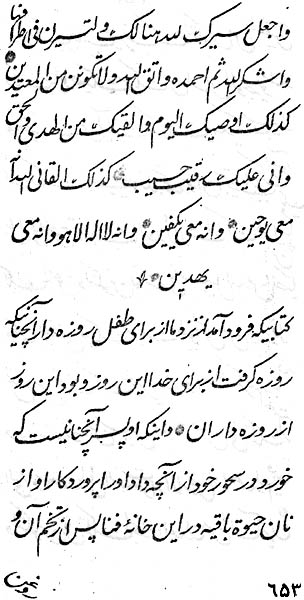 واجعل سیرک لله هنالک ولتسیرن فی اطرافنا
واشکر لله ثم احمده واتق الله ولا تکونن من المعتدین
کذلک اوصیک الیوم والقیک من الهدی و الحق
وانی علیک رقیب حسیب * کذلک القانی الله
معی یوحین * وانه معی یکفین * وانه لا اله الا هو وانه معی
یهدین *
کتابیکه فرود آمد از نزد ما از برای طفل روزه دار آنچنانیکه
روزه گرفت از برای خدا این روز و بود این روز
از روزه داران * و اینکه او پسر آنچنانیست که
خورد در سحور خود از آنچه داد او را پروردکار او از
نان حیوة باقیه در این خانهٔ فنا پس از تخم آن و
۶۵۳